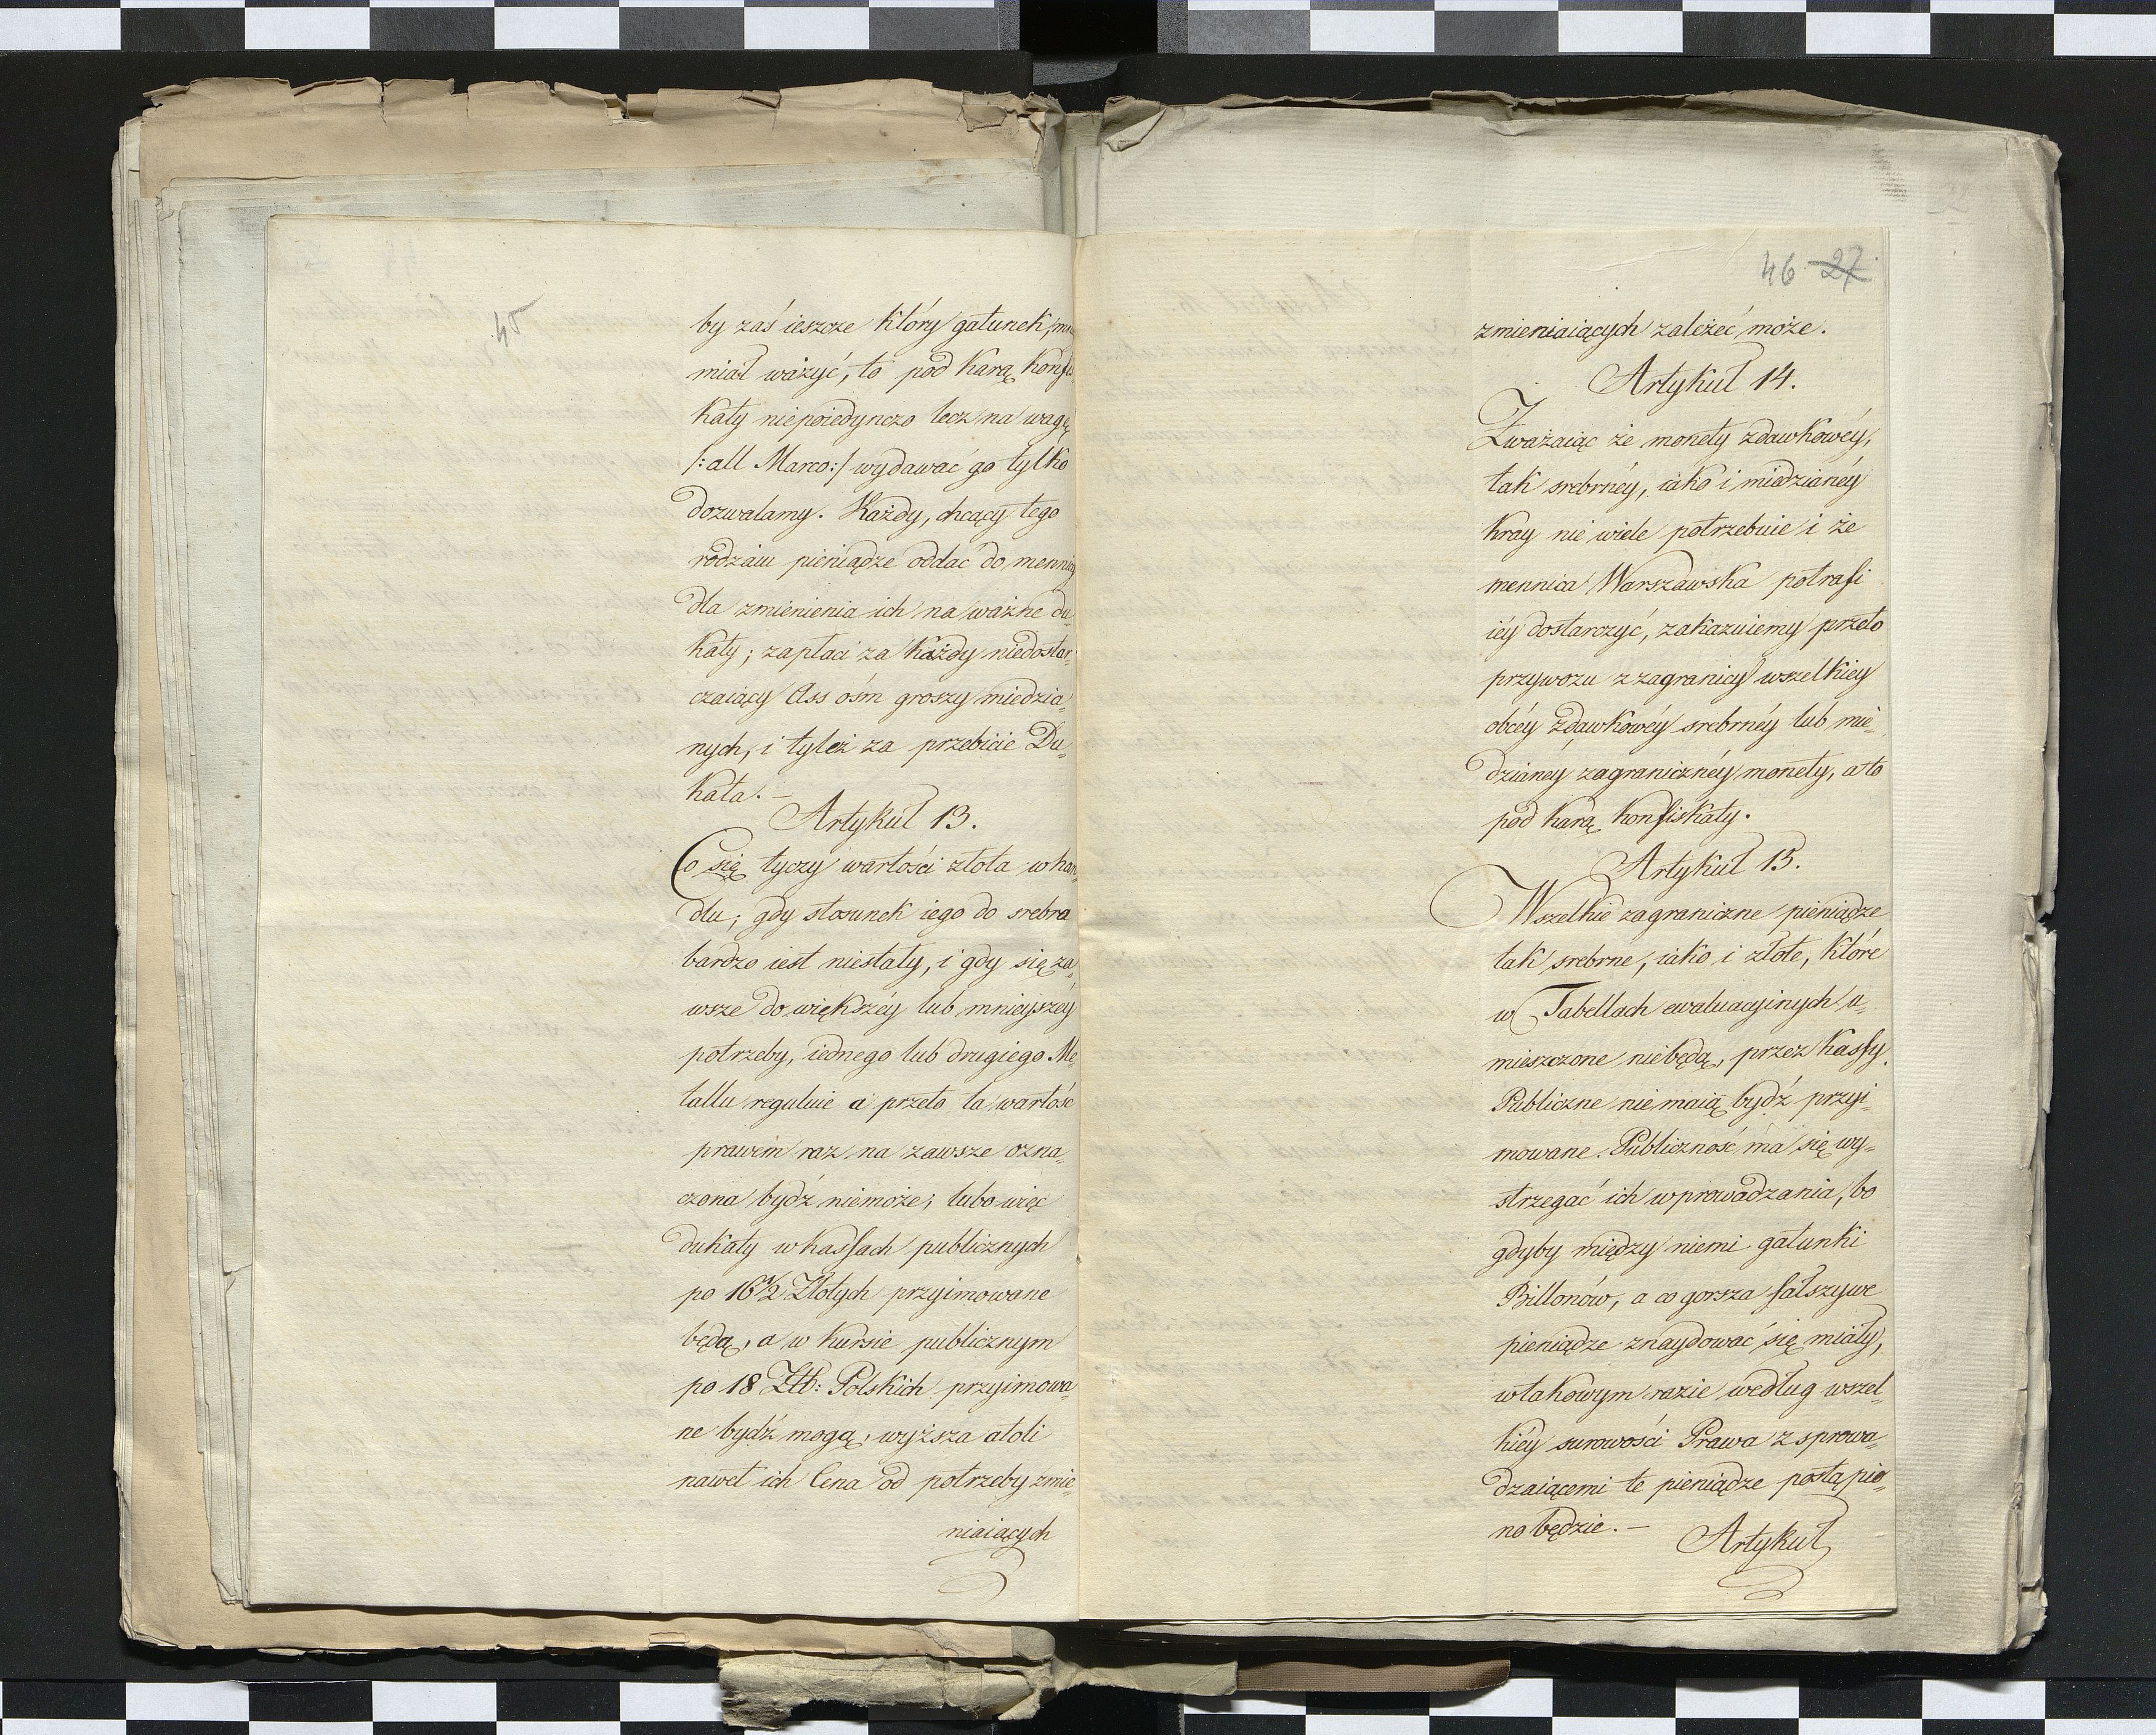 45
by zaś ieszcze który gatunek,
miał ważyć, to pod karą konfis
katy niepoiedynczo lecz na wagę
/: all Marco:/ wydawać go tylko
dozwalamy. Każdy, chcący tego
rodzaiu pieniądze oddać do mennicy
dla zmienienia ich na ważne du„
katy; zapłaci za każdy niedostar„
czaiący Ass ośm groszy miedzia„
nych, i tyleż za przebicie Du„
kata. —
Artykuł 13.
Co się tyczy wartości złota w han„
dlu; gdy stosunek iego do srebra
bardzo iest niestały, i gdy się za„
wsze do większéy lub mnieyszéy
potrzeby, iednego lub drugiego Me„
tallu reguluie a przeto ta wartość
prawem raz na zawsze ozna„
czona bydź niemoże; lubo więc
dukaty w kassach publicznych
po 16 1/2 Złotych przyimowane
będą, a w kursie publicznym
po 18 Złt: Polskich przyimowa
ne bydź mogą, wyższa atoli
nawet ich Cena od potrzeby zmie„
niaiących
46 27
zmieniaiących zależeć może.
Artykuł 14.
Zważaiąc że monety zdawkowéy,
tak srebrnéy, iako i miedzianéy
kray nie wiele potrzebuie i że
mennica Warszawska potrafi
iéy dostarczyć, zakazuiemy przeto
przywozu z zagranicy wszelkiey
obcéy zdawkowéy srebrnéy lub mie„
dzianéy zagranicznéy monety, a to
pod karą konfiskaty.
Artykuł 15.
Wszelkie zagraniczne pieniądze
tak srebrne, iako i złote, które
w Tabellach ewaluacyinych u„
mieszczone niebędą, przez kassy
Publiczne nie maią bydź przyi„
mowane. Publiczność ma się wy„
strzegać ich wprowadzania, bo
gdyby między niemi gatunki
Billonów, a co gorsza fałszywe
pieniądze znaydować się miały,
w takowym razie według wszel„
kiéy surowości Prawa z sprowa„
dzaiącemi te pieniądze postąpio„
no będzie. —
Artykuł